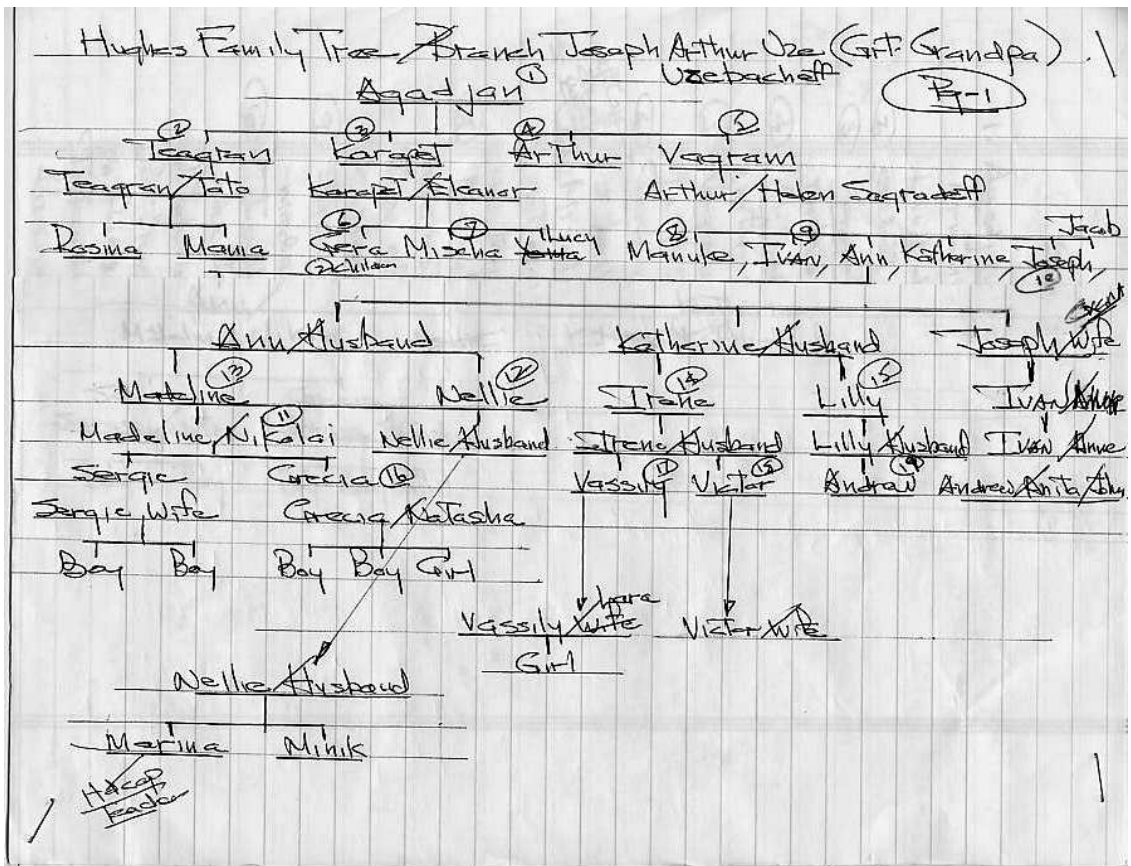 Hughes Family Tree/Branch Joseph Arthur Uze (Grt. Grandpa)
Uzebacheff
Pg-1
Agadjan ①
② ③ ④ ⑤
Teagran Karapet Arthur Vagram
Teagran/Tato Karapet/Eleanor Arthur/Helen Sagradoff
⑥ ⑦ Lucy ⑧ ⑨ Jacob
Rosina Mania Gera Mischa Manuke, Ivan, Ann, Katherine, Joseph,
2 children ⑩
Ann/Husband Katherine/Husband Joseph/Wife
⑬ ⑫ ⑭ ⑮
Madeline Nellie Irene Lilly Ivan/
⑪
Madeline/Nikolai Nellie/Husband Irene/Husband Lilly/Husband Ivan/Anne
Sergie Grecia ⑯ Vassily ⑰ Victor ⑱ Andrew ⑲ Andrew/Anita/John
Sergie, Wife Grecia/Natasha
Boy Boy Boy Boy Girl
Lara
Vassily/Wife Victor/Wife
Girl
Nellie/Husband
Marina Minik